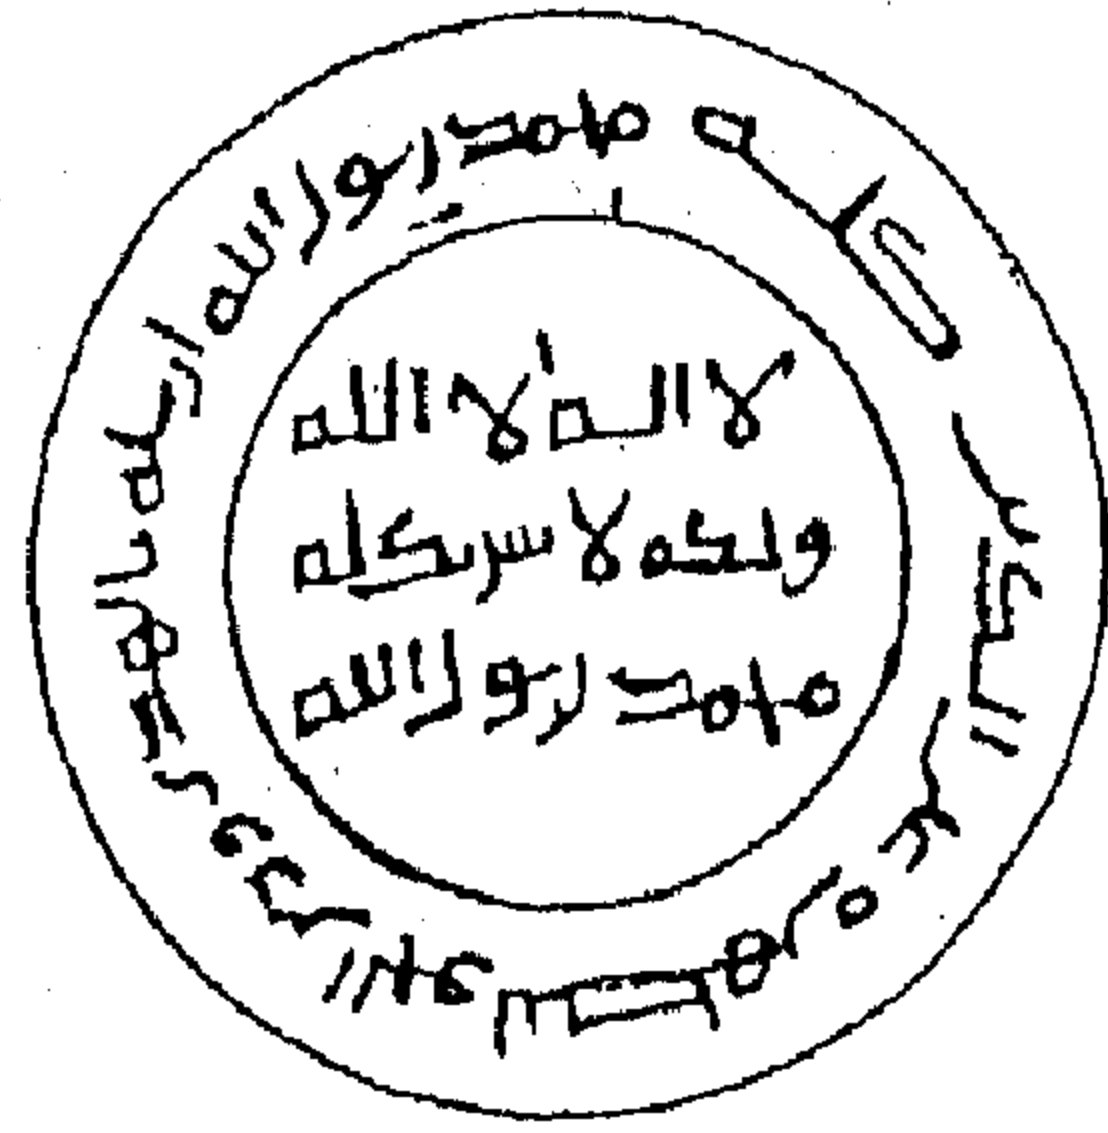 لا اله الا الله
وحده لا شريك له
محمد رسول الله
محمد رسول الله ارسله بالهدى ودين الحق ليظهره على الدين كله